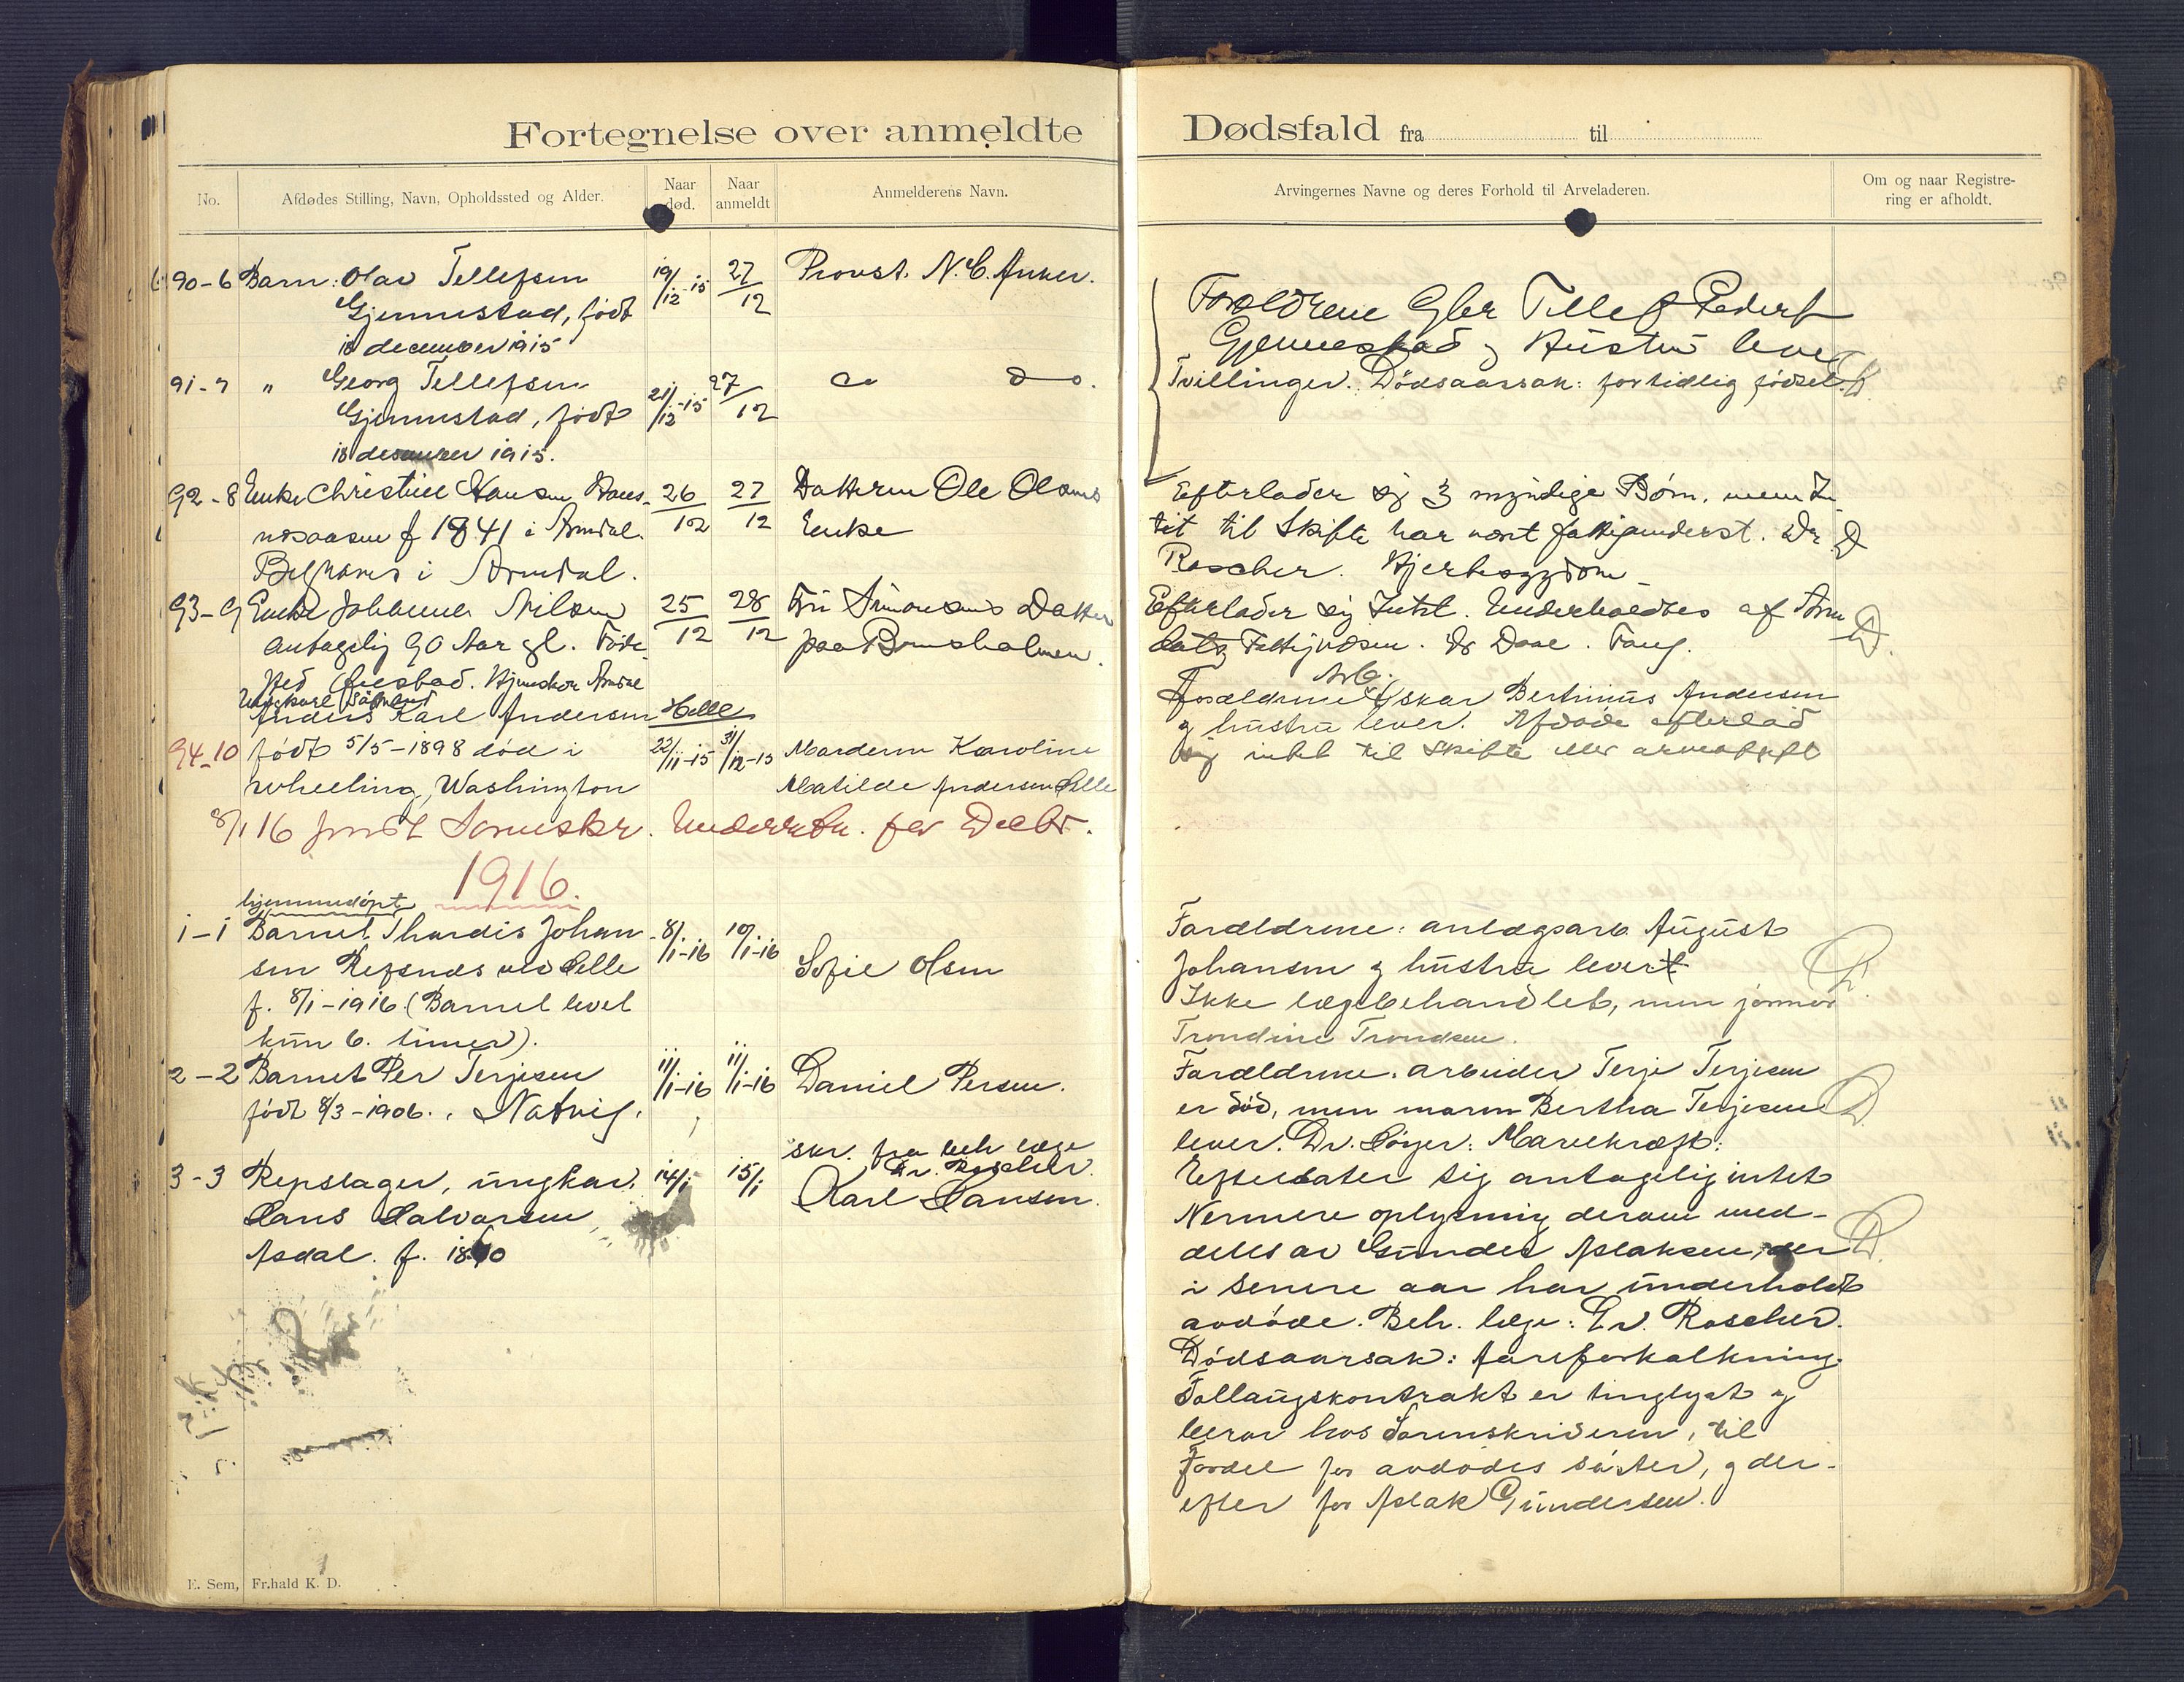 Fortegnelse over anmeldte Dødsfald fra til
No. Afdødes Stilling, Navn, Opholdssted og Alder. Naar død. Naar anmeldt Anmelderens Navn. Arvingernes Navne og deres Forhold til Arveladeren. Om og naar Registre-ring er afholdt.
90-6 Barn: Olav Tellefsen 19/12-15 27/12 Provst. N. C. Anker.
Gjennestad, født
18 december 1915
Forældrene Tellef Peders
Gjennestad og Hustru lever
91-7 " Georg Tellefsen 21/12-15 27/12 do.
Gjennestad, født
18 desember 1915.
Tvillinger. Dödsaarsak: for tidlig födsel.
92-8 Enke Christine Hansen 26/12 27/12 Datteren Ole Olsens
f 1841 i Arendal. Enke
i Arendal.
Efterlader sig 3 myndige Børn, men In-
tet til Skifte har været fattigunderst. Dr D
Roscher. Hjertesygdom
93-9 Enke Johanne Nilsen 25/12 28/12 Datter
antagelig 90 Aar gl. Føde- paa
sted Hjemshør Arendal
Efterlader sig Intet. Underholdtes af Aren
dals Fattigvæsen. Dr Daae. D.
Ungkarl Sømand
Anders Karl Andersen Helle
94-10 født 5/5-1898 død i 22/11-15 31/12-15 Moderen Karoline
wheeling, Washington Matilde Andersen Helle
Arb.
Forældrene Oskar Bertinius Andersen
og hustru lever. Afdøde efterlod
sig intet til Skifte eller arveafgift
8/1 16 Sorenskr. Underretn. for Decbr.
1916.
hjemmedöpt
1-1 Barnet Thordis Johan- 8/1-16 10/1-16 Sofie Olsen
sen Refsnes ved Helle
f. 8/1-1916. (Barnet levet
kun 6. timer).
Forældrene: anlægsarb. August
Johansen og hustru lever
Ikke lægebehandlet, men jormor
Trondine Trondsen.
2-2 Barnet Per Terjesen 11/1-16 11/1-16 Daniel Persen.
født 8/3-1906. Natvig.
Forældrene. arbeider Terje Terjesen
er död, men moren Bertha Terjesen D
lever. Dr. Søyer: Mavekræft.
skr. fra beh læge
Dr. Roscher.
3-3 Repslager, ungkar. 14/1 15/1 Karl Hansen.
Hans Halvorsen
Asdal. f.
Efterlater sig antagelig intet
Nermere oplysning derom med-
deles av Gunder Aslaksen, der D.
i senere aar har underholdt
avdøde. Beh. læge: Dr. Roscher.
Dödsaarsak: Aareforkalkning.
Follaugskontrakt er tinglyst og
beror hos Sorenskriveren, til
Fordel for avdødes søster, og der-
efter for Aslak Gundersen.
E. Sem, Fr.hald K. D.